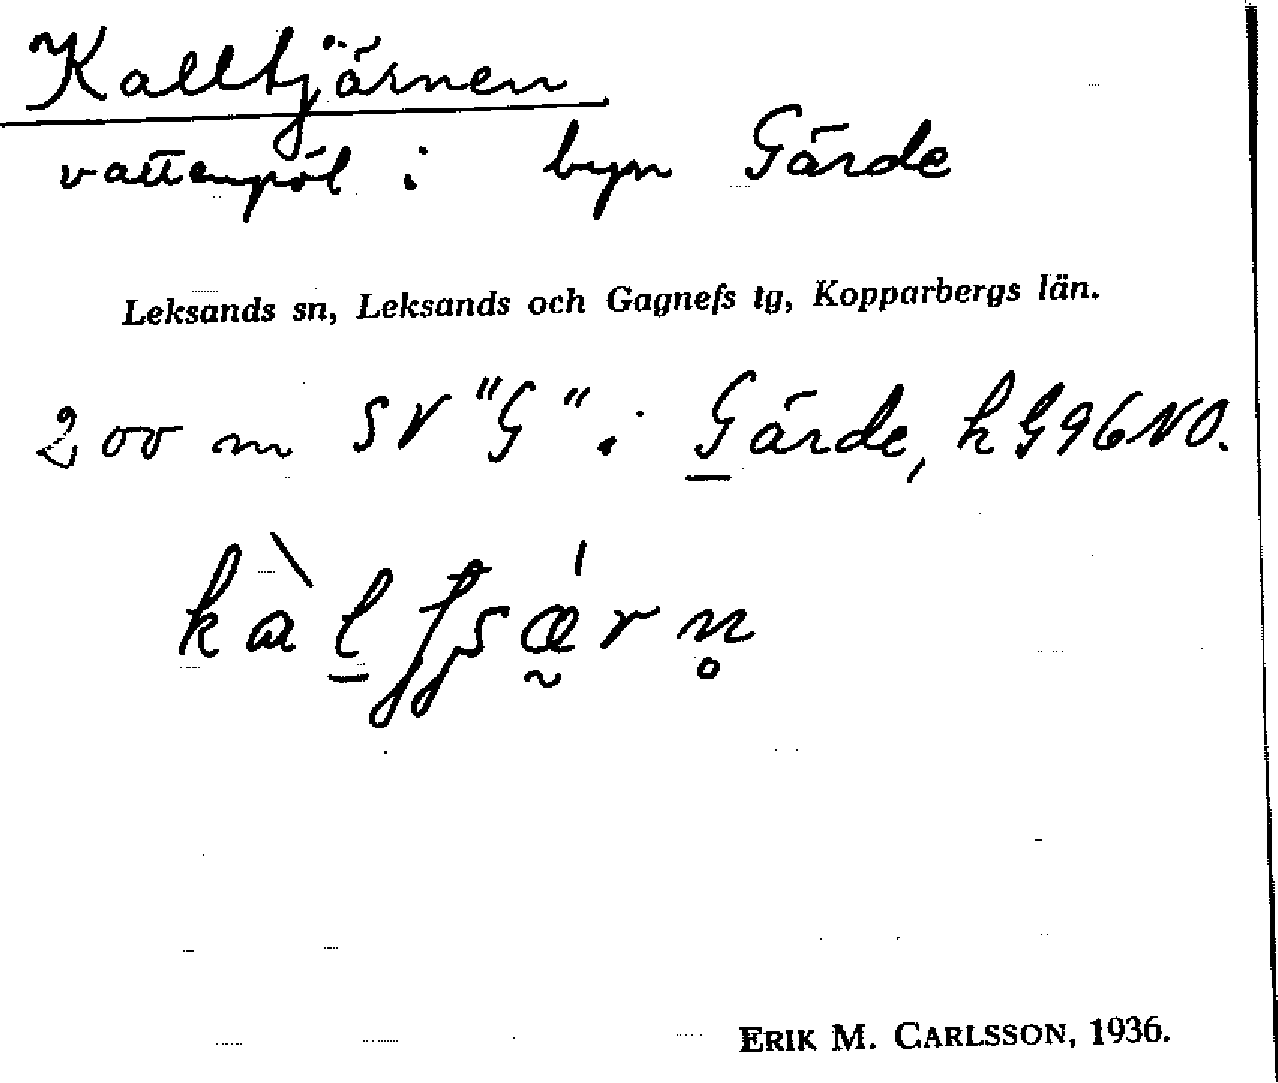 Kalltjärnen
vattenpöl i byn Gärde
Leksands sn, Leksands och Gagnefs tg, Kopparbergs län.
200 m SV "G" i Gärde, h G96NO.
ERIK M. CARLSSON, 1936.